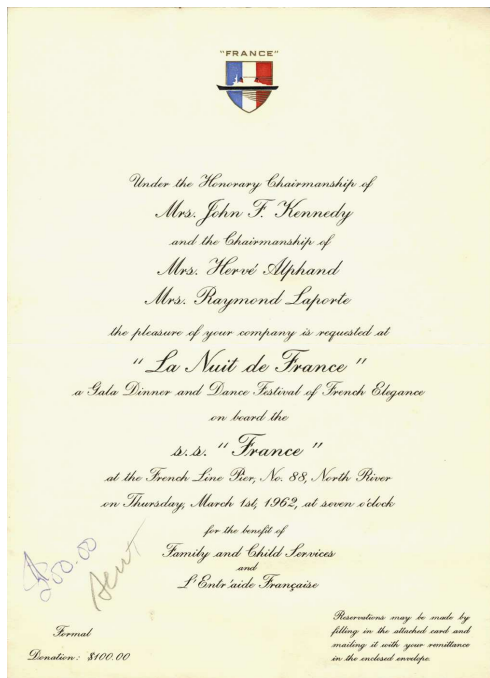 "FRANCE"
Under the Honorary Chairmanship of
Mrs. John F. Kennedy
and the Chairmanship of
Mrs. Hervé Alphand
Mrs. Raymond Laporte
the pleasure of your company is requested at
" La Nuit de France "
a Gala Dinner and Dance Festival of French Elegance
on board the
s.s. " France "
at the French Line Pier, No. 88, North River
on Thursday, March 1st, 1962, at seven o'clock
for the benefit of
Family and Child Services
and
L'Entr'aide Française
sent
Formal
Donation: $100.00
Reservations may be made by
filling in the attached card and
mailing it with your remittance
in the enclosed envelope.